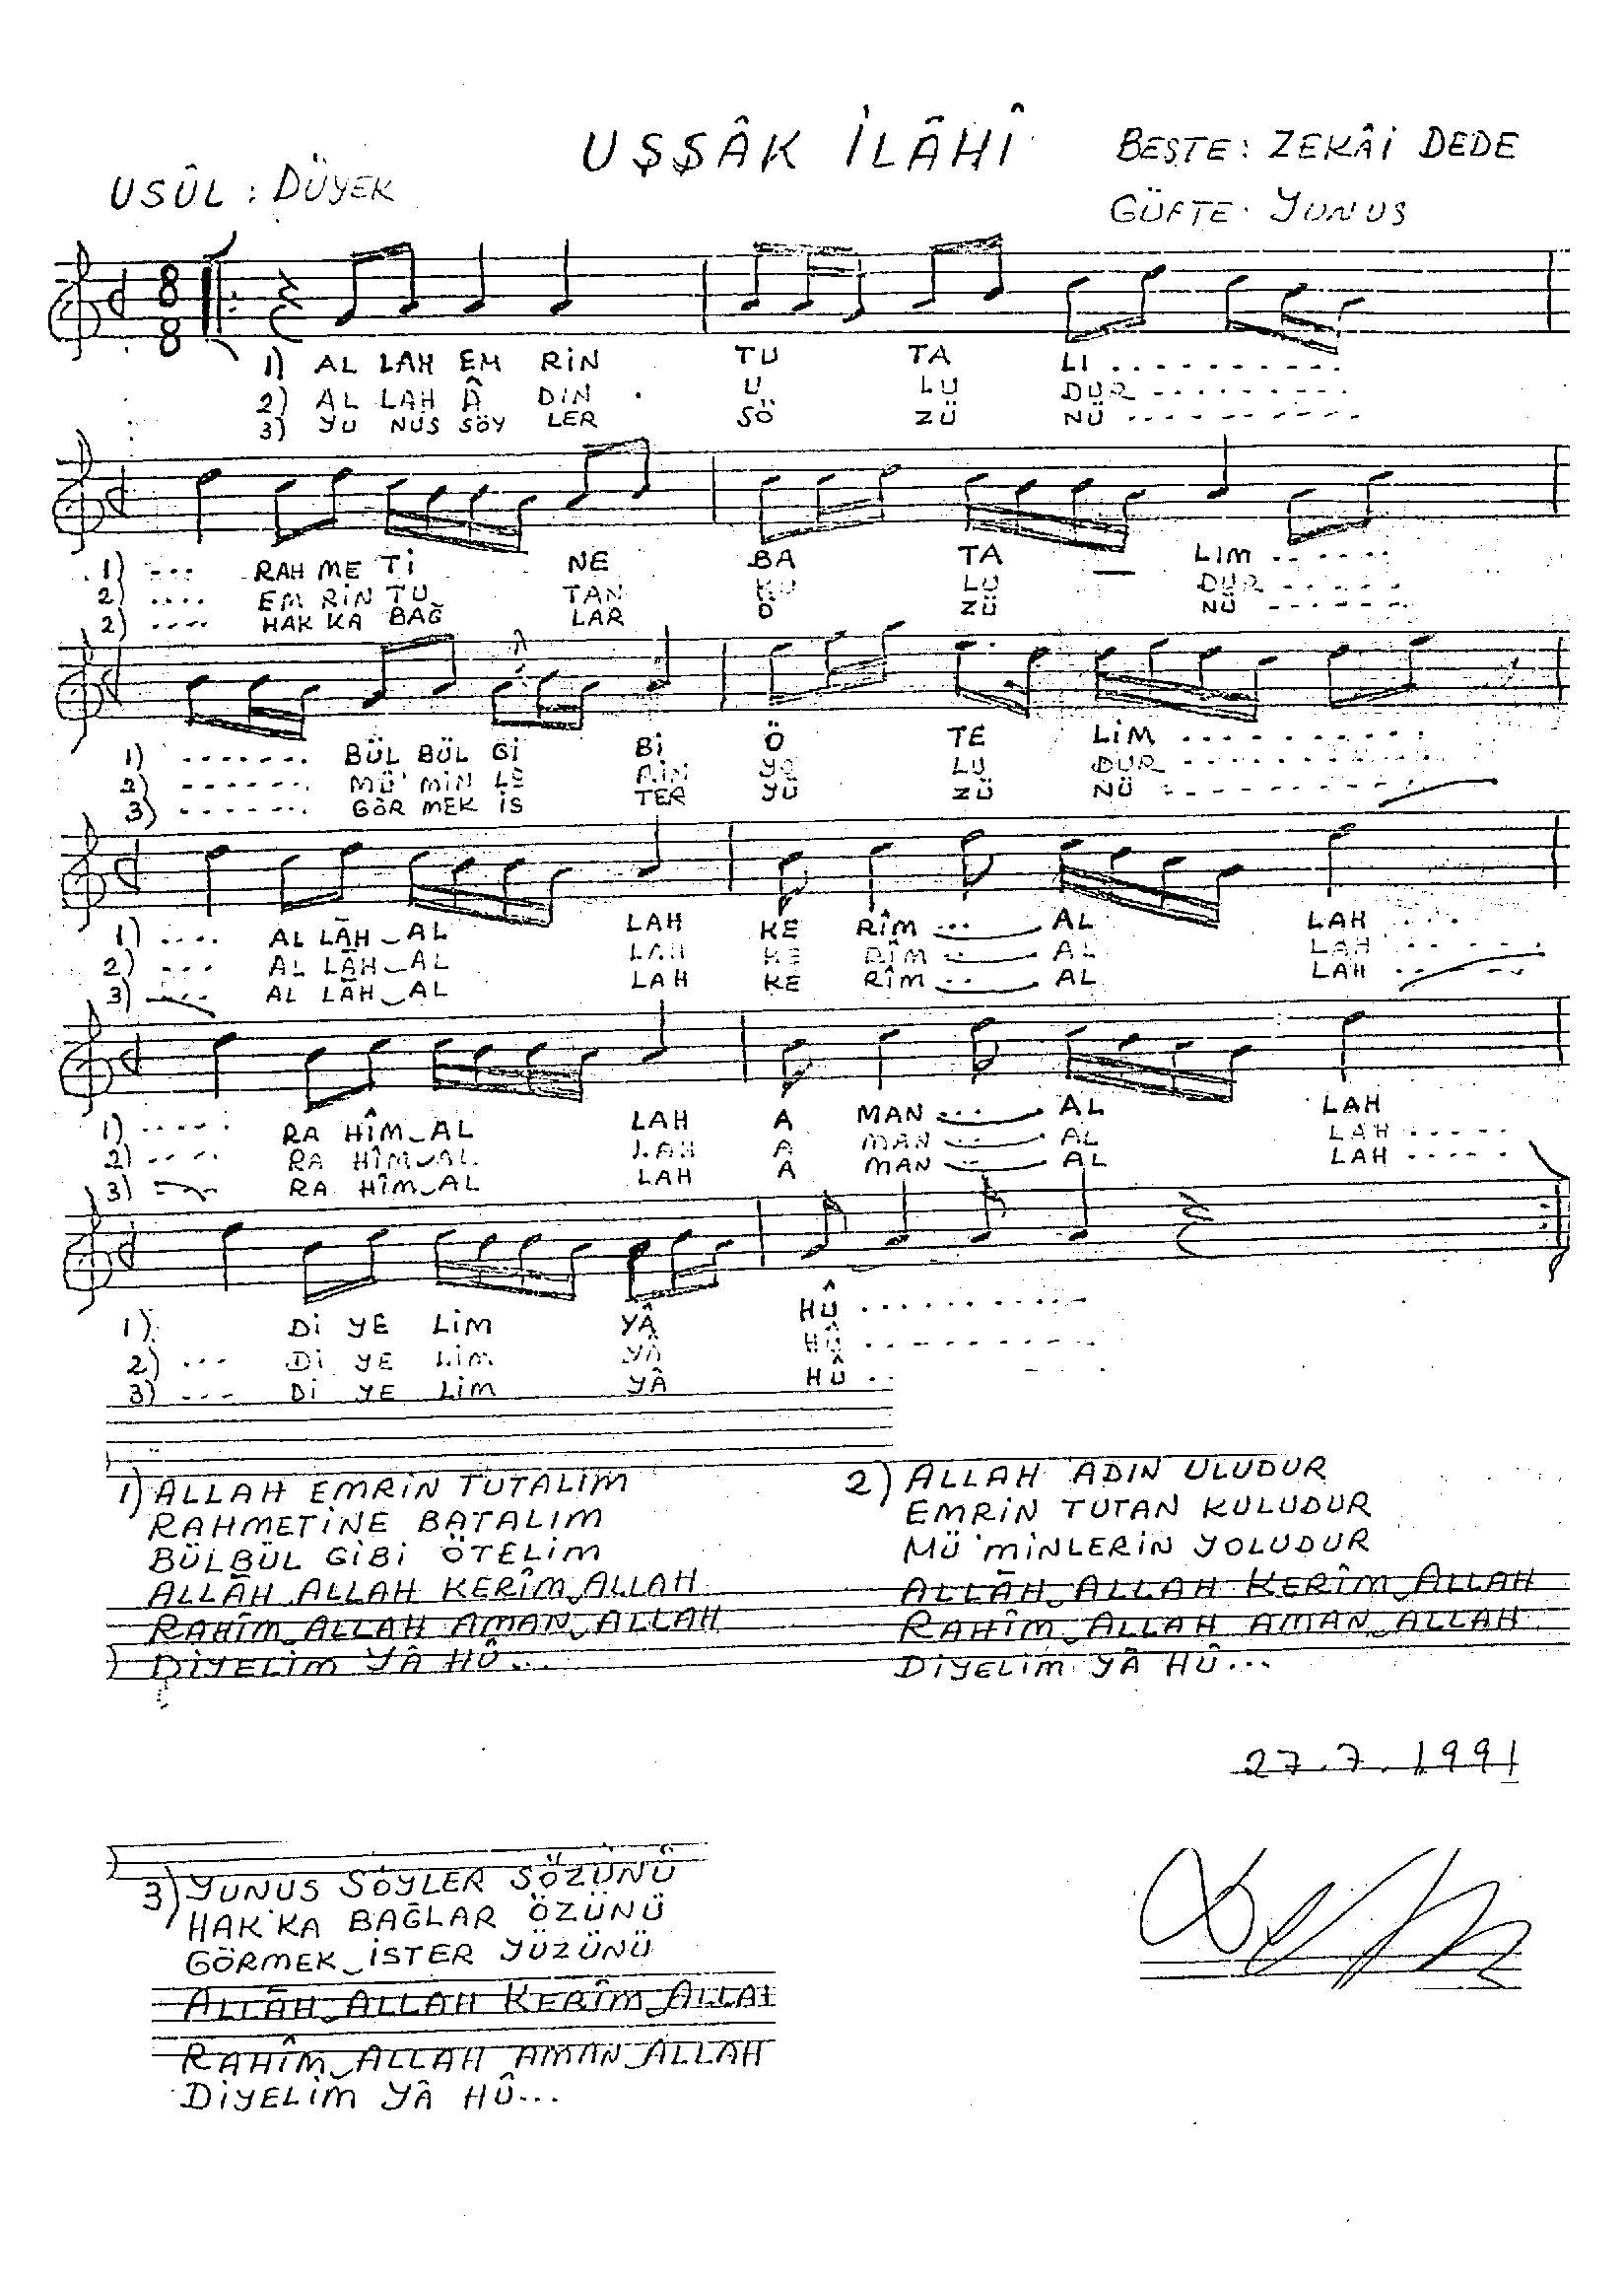 UŞŞÂK İLÂHÎ
BESTE: ZEKÂİ DEDE
USÛL: DÜYEK
GÜFTE: YUNUS
8
8
1) AL LAH EM RİN TU TA LI .........
2) AL LAH Â DIN . U LU DUR .........
3) YU NUS SÖY LER SÖ ZÜ NÜ .........
1) ... RAH ME Tİ NE BA TA LIM ......
2) .... EM RİN TU TAN KU LU DUR ......
2) .... HAK KA BAĞ LAR Ö ZÜ NÜ ......
1) ....... BÜL BÜL Gİ Bİ Ö TE LİM .........
2) ....... MÜ' MİN LE RİN YO LU DUR .........
3) ....... GÖR MEK İS TER YÜ ZÜ NÜ .........
1) .... AL LÂH AL LAH KE RÎM ... AL LAH ....
2) .... AL LÂH AL LAH KE RÎM ... AL LAH ......
3) .... AL LÂH AL LAH KE RÎM ... AL LAH ......
1) ..... RA HÎM AL LAH A MAN ... AL LAH
2) .... RA HÎM AL LAH A MAN ... AL LAH .....
3) .... RA HÎM AL LAH A MAN ... AL LAH .....
1) Dİ YE LİM YÂ HÛ ..........
2) ... Dİ YE LİM YÂ HÛ ..........
3) ... Dİ YE LİM YÂ HÛ ..
1) ALLAH EMRİN TUTALIM
RAHMETİNE BATALIM
BÜLBÜL GİBİ ÖTELİM
ALLÂH ALLAH KERÎM ALLAH
RAHÎM ALLAH AMAN ALLAH
DİYELİM YÂ HÛ...
2) ALLAH ADIN ULUDUR
EMRİN TUTAN KULUDUR
MÜ'MİNLERİN YOLUDUR
ALLÂH ALLAH KERÎM ALLAH
RAHÎM ALLAH AMAN ALLAH
DİYELİM YÂ HÛ...
27.7.1991
3) YUNUS SÖYLER SÖZÜNÜ
HAK'KA BAĞLAR ÖZÜNÜ
GÖRMEK İSTER YÜZÜNÜ
ALLÂH ALLAH KERÎM ALLAH
RAHÎM ALLAH AMAN ALLAH
DİYELİM YÂ HÛ...